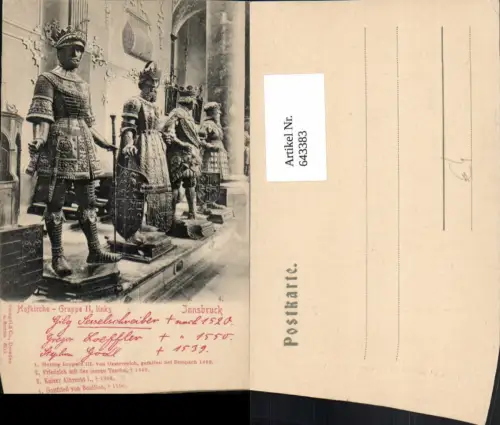 Hofkirche - Gruppe II, links
Innsbruck
4.
Gilg Sesselschreiber + nach 1520.
Gregor Loeffler + " 1550.
Stefan Godl + 1539.
1. Herzog Leopold III. von Oesterreich, gefallen bei Sempach 1386.
2. Friedrich mit der leeren Tasche, † 1439.
3. Kaiser Albrecht I., † 1308.
4. Gottfried von Bouillon, † 1100.
Artikel Nr.
643383
Postkarte.